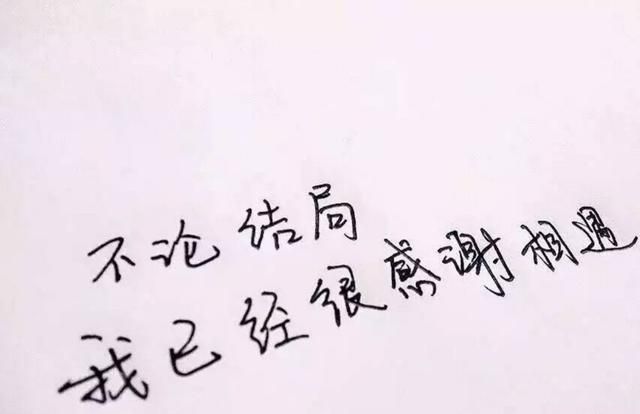 不论结局
我已经很感谢相遇